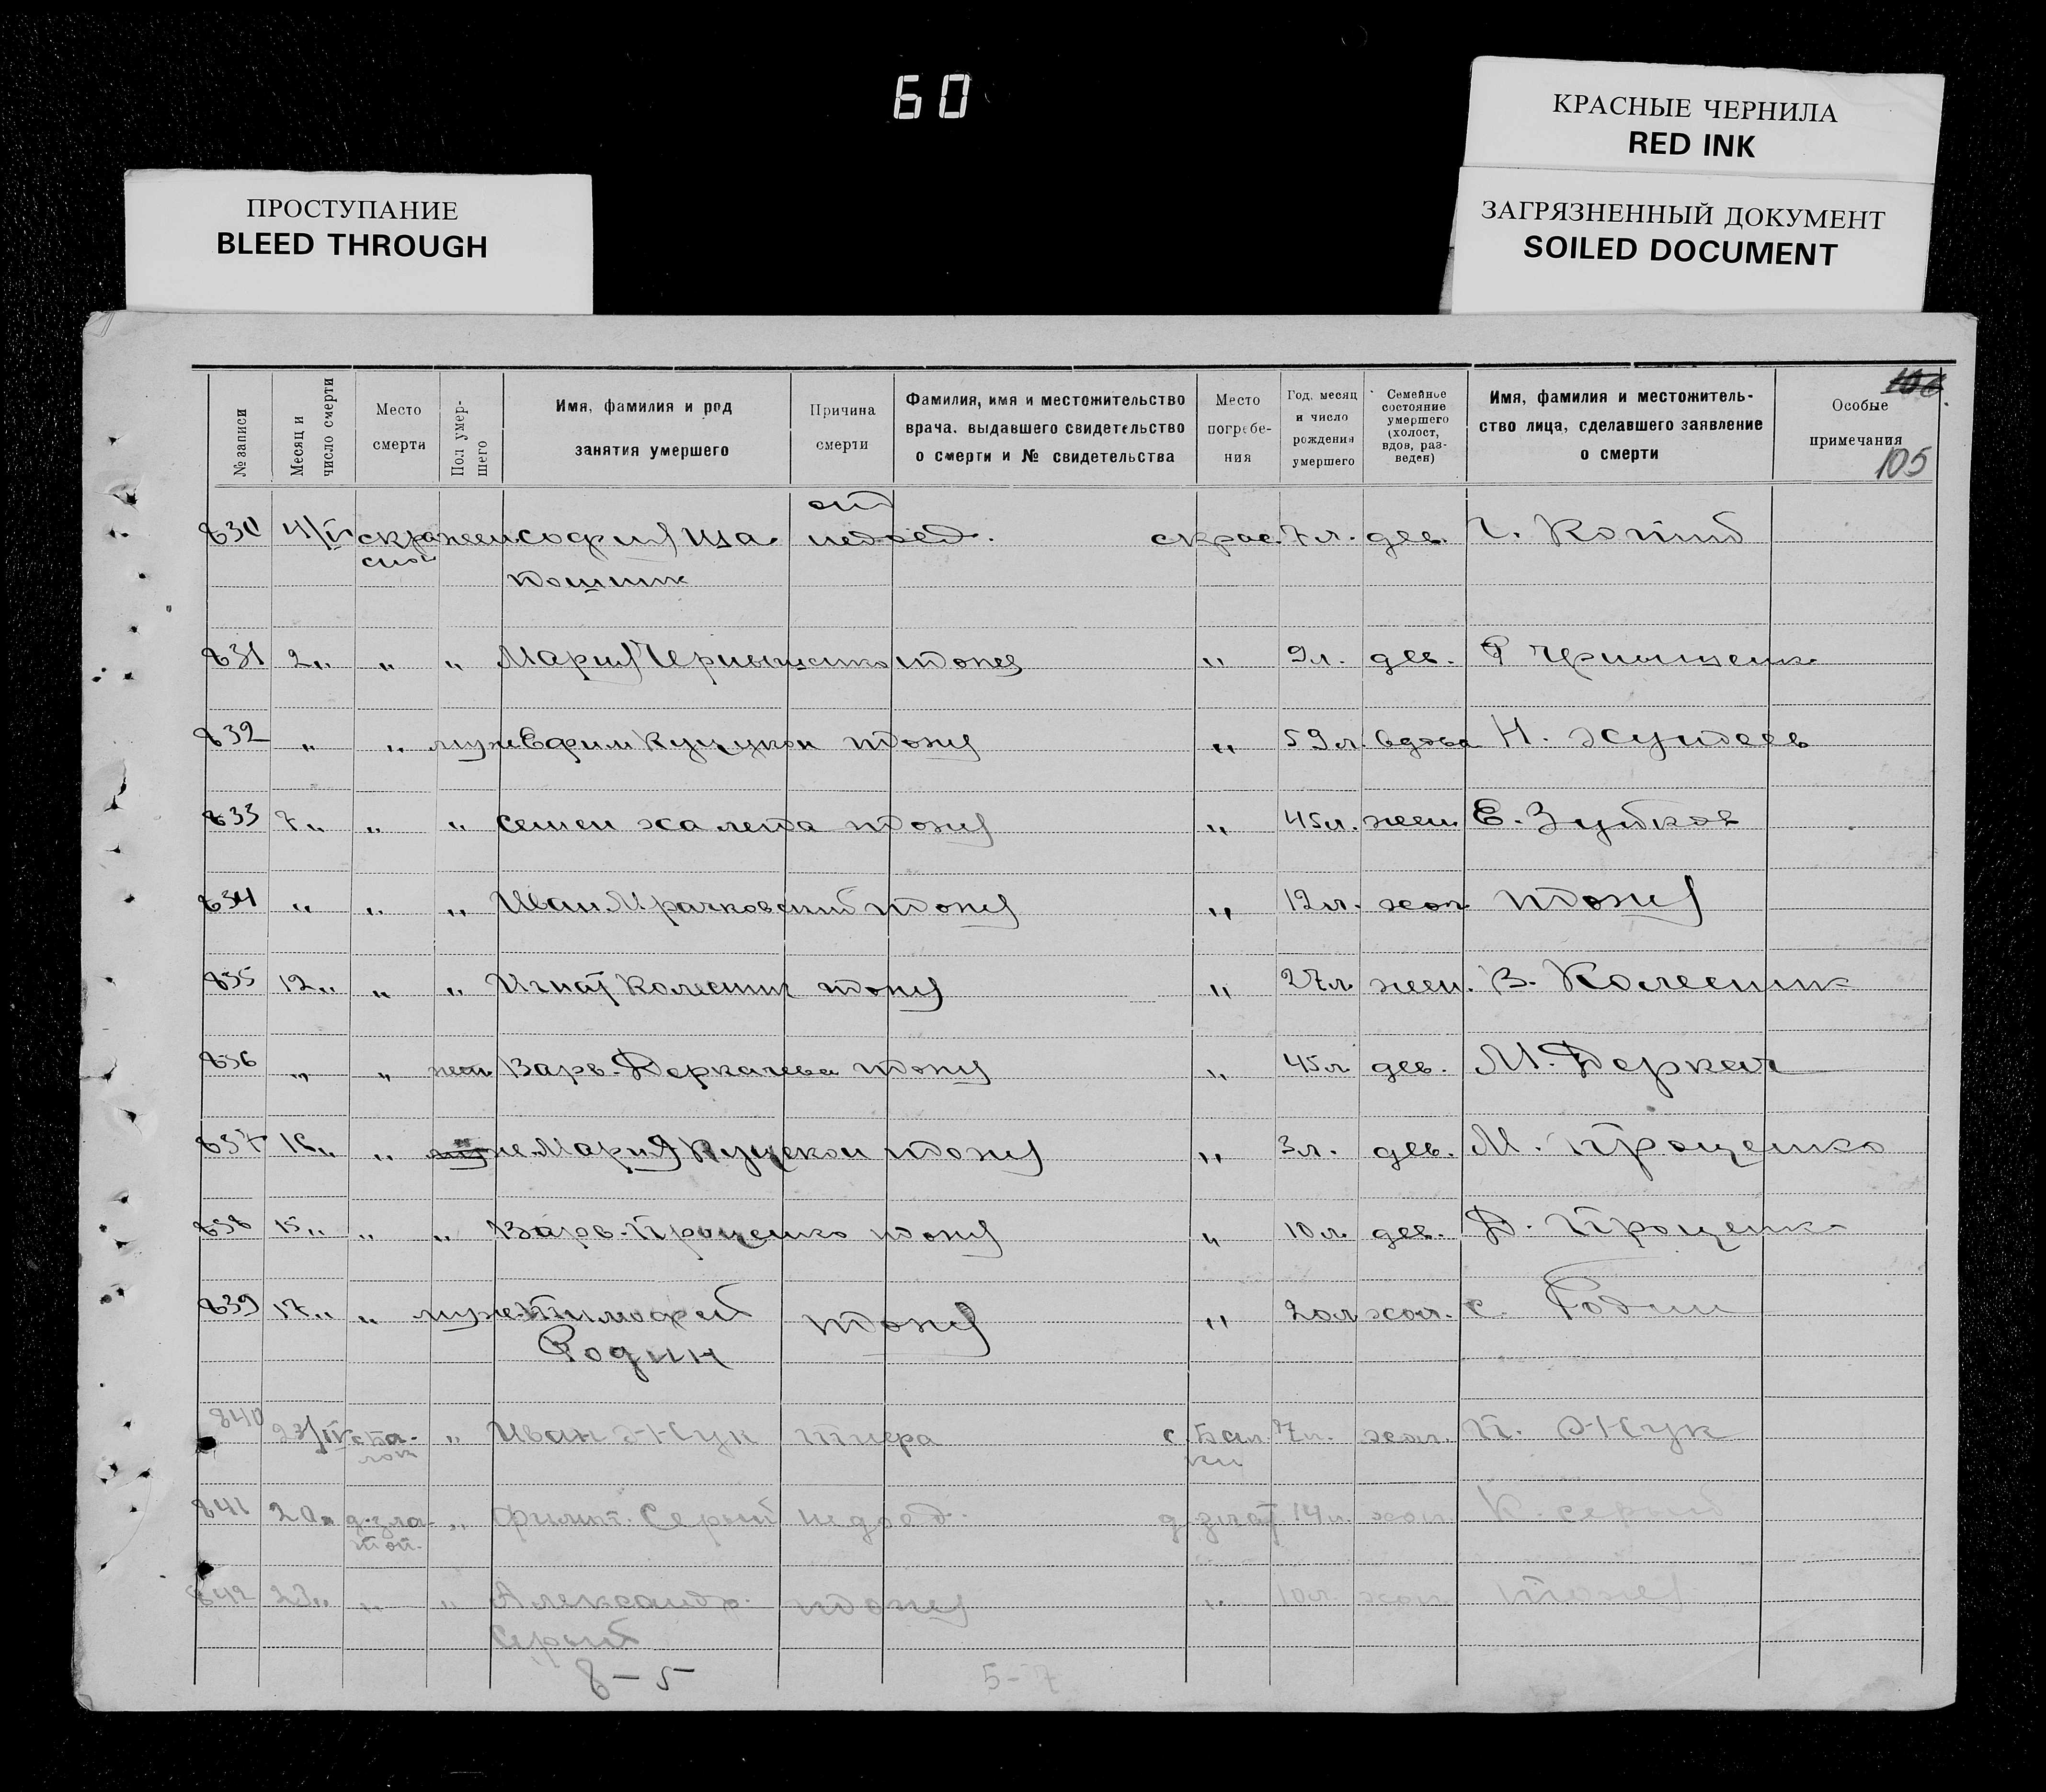 60
КРАСНЫЕ ЧЕРНИЛА
RED INK
ПРОСТУПАНИЕ
BLEED THROUGH
ЗАГРЯЗНЕННЫЙ ДОКУМЕНТ
SOILED DOCUMENT
105
№ записи
Месяц и число смерти
Место смерти
Пол умер-шего
Имя, фамилия и род занятия умершего
Причина смерти
Фамилия, имя и местожительство врача, выдавшего свидетельство о смерти и № свидетельства
Место погребе-ния
Год, месяц и число рождения умершего
Семейное состояние умершего (холост, вдов, раз-веден)
Имя, фамилия и местожитель-ство лица, сделавшего заявление о смерти
Особые примечания
830 София от недоед. 7 л. дев.
831 2 „ „ „ Мария Чернышенко тоже „ 9 л. дев. Чернышенко
832 „ „ муж Ефим тоже „ 59 л. вдов Н.
833 7 „ „ „ Семен Халепа тоже „ 45 л. жен. Е. Зубков
834 „ „ „ Иван Мрачковский тоже „ 12 л. хол. тоже
835 12 „ „ „ Игнат Колесник тоже „ 27 л. жен. В. Колесник
836 „ „ жен Варв. Деркачева тоже „ 45 л. дев. М. Деркач
837 16 „ „ Мария тоже „ 3 л. дев. М. Проценко
838 15 „ „ „ Варв. Проценко тоже „ 10 л. дев. Д. Проценко
839 17 „ „ муж Тимофей Родин тоже „ 20 л. хол. С. Родин
840 „ Иван Жук с. Бал-ки 7 л. хол. П. Жук
841 20 „ д. Зла-той „ Филип. Серый недоед. д. Злат 14 л. хол. К. Серый
842 23 „ „ „ Александр Серый тоже „ 10 л. хол. тоже
8-5
5-7